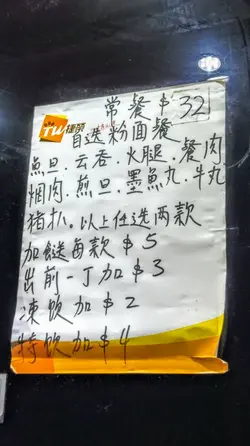 常餐$32
TW 捷榮
自选粉面餐
魚旦.云吞.火腿.餐肉
焗肉.煎旦.墨魚丸.牛丸
猪扒.以上任选两款
加餸每款$5
出前一丁加$3
凍饮加$2
特饮加$4